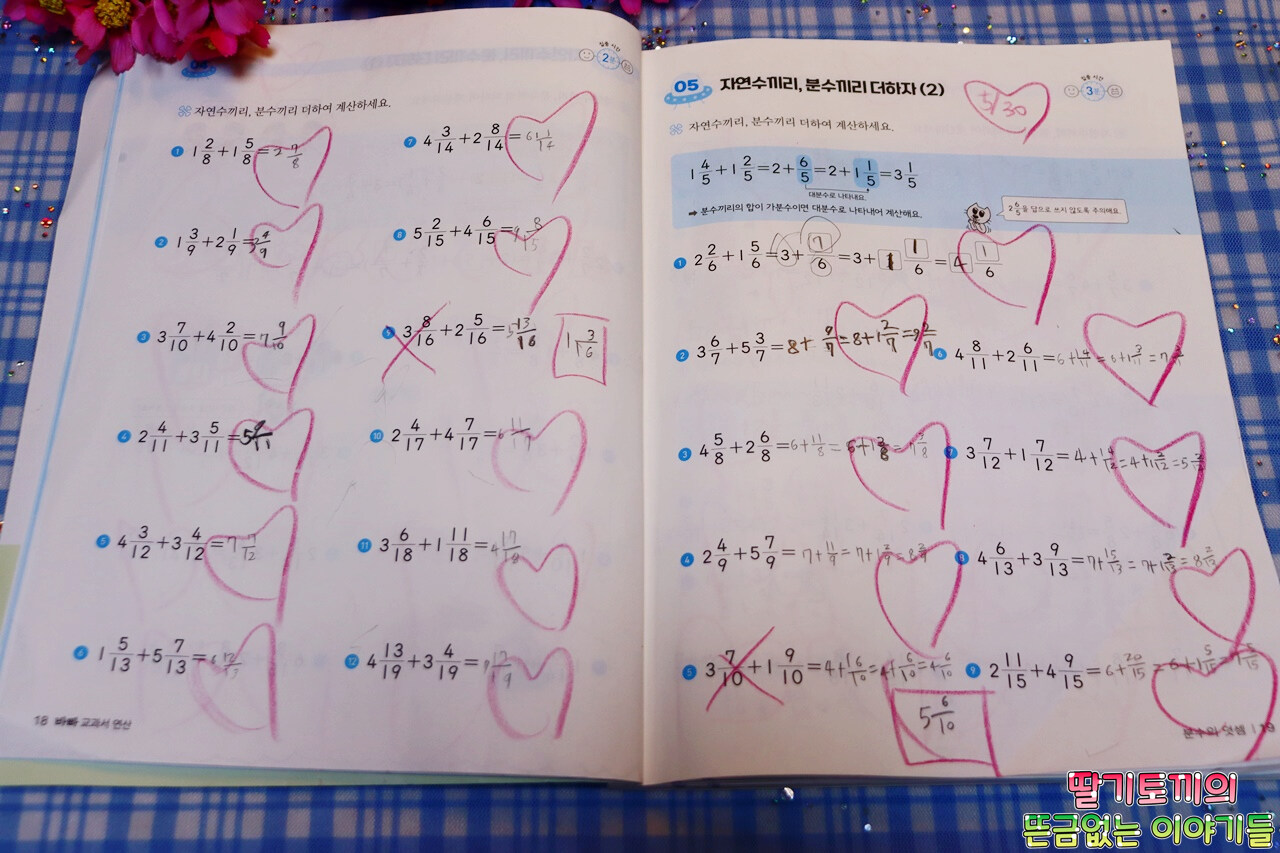 집중 시간
2분
자연수끼리, 분수끼리 더하여 계산하세요.
1 1 2/8 + 1 5/8 = 2 7/8
2 1 3/9 + 2 1/9 = 3 4/9
3 3 7/10 + 4 2/10 = 7 9/10
4 2 4/11 + 3 5/11 = 5 9/11
5 4 3/12 + 3 4/12 = 7 7/12
6 1 5/13 + 5 7/13 = 6 12/13
7 4 3/14 + 2 8/14 = 6 11/14
8 5 2/15 + 4 6/15 = 9 8/15
9 3 8/16 + 2 5/16 = 5 13/16
1 3/16
10 2 4/17 + 4 7/17 = 6 11/17
11 3 6/18 + 1 11/18 = 4 17/18
12 4 13/19 + 3 4/19 =
18 바빠 교과서 연산
05 자연수끼리, 분수끼리 더하자 (2)
5/30
집중 시간
3분
자연수끼리, 분수끼리 더하여 계산하세요.
1 4/5 + 1 2/5 = 2 + 6/5 = 2 + 1 1/5 = 3 1/5
대분수로 나타내요.
➡ 분수끼리의 합이 가분수이면 대분수로 나타내어 계산해요.
2 6/5을 답으로 쓰지 않도록 주의해요.
1 2 2/6 + 1 5/6 = 3 + 7/6 = 3 + 1 1/6 = 4 1/6
2 3 6/7 + 5 3/7 = 8 + 9/7 = 8 + 1 2/7 = 9 2/7
3 4 5/8 + 2 6/8 = 6 + 11/8 = 6 + 1 3/8 = 7 3/8
4 2 4/9 + 5 7/9 = 7 + 11/9 = 7 + 1 2/9 = 8 2/9
5 3 7/10 + 1 9/10 = 4 + 16/10 = 4 + 6/10 = 4 6/10
5 6/10
6 4 8/11 + 2 6/11 = 6 + 14/11 = 6 + 1 3/11 = 7 3/11
7 3 7/12 + 1 7/12 = 4 + 14/12 = 4 + 1 2/12 = 5 2/12
8 4 6/13 + 3 9/13 = 7 + 15/13 = 7 + 1 2/13 = 8 2/13
9 2 11/15 + 4 9/15 = 6 + 20/15 = 6 + 1 5/15 = 7 5/15
분수의 덧셈 | 19
딸기토끼의
뜬금없는 이야기들